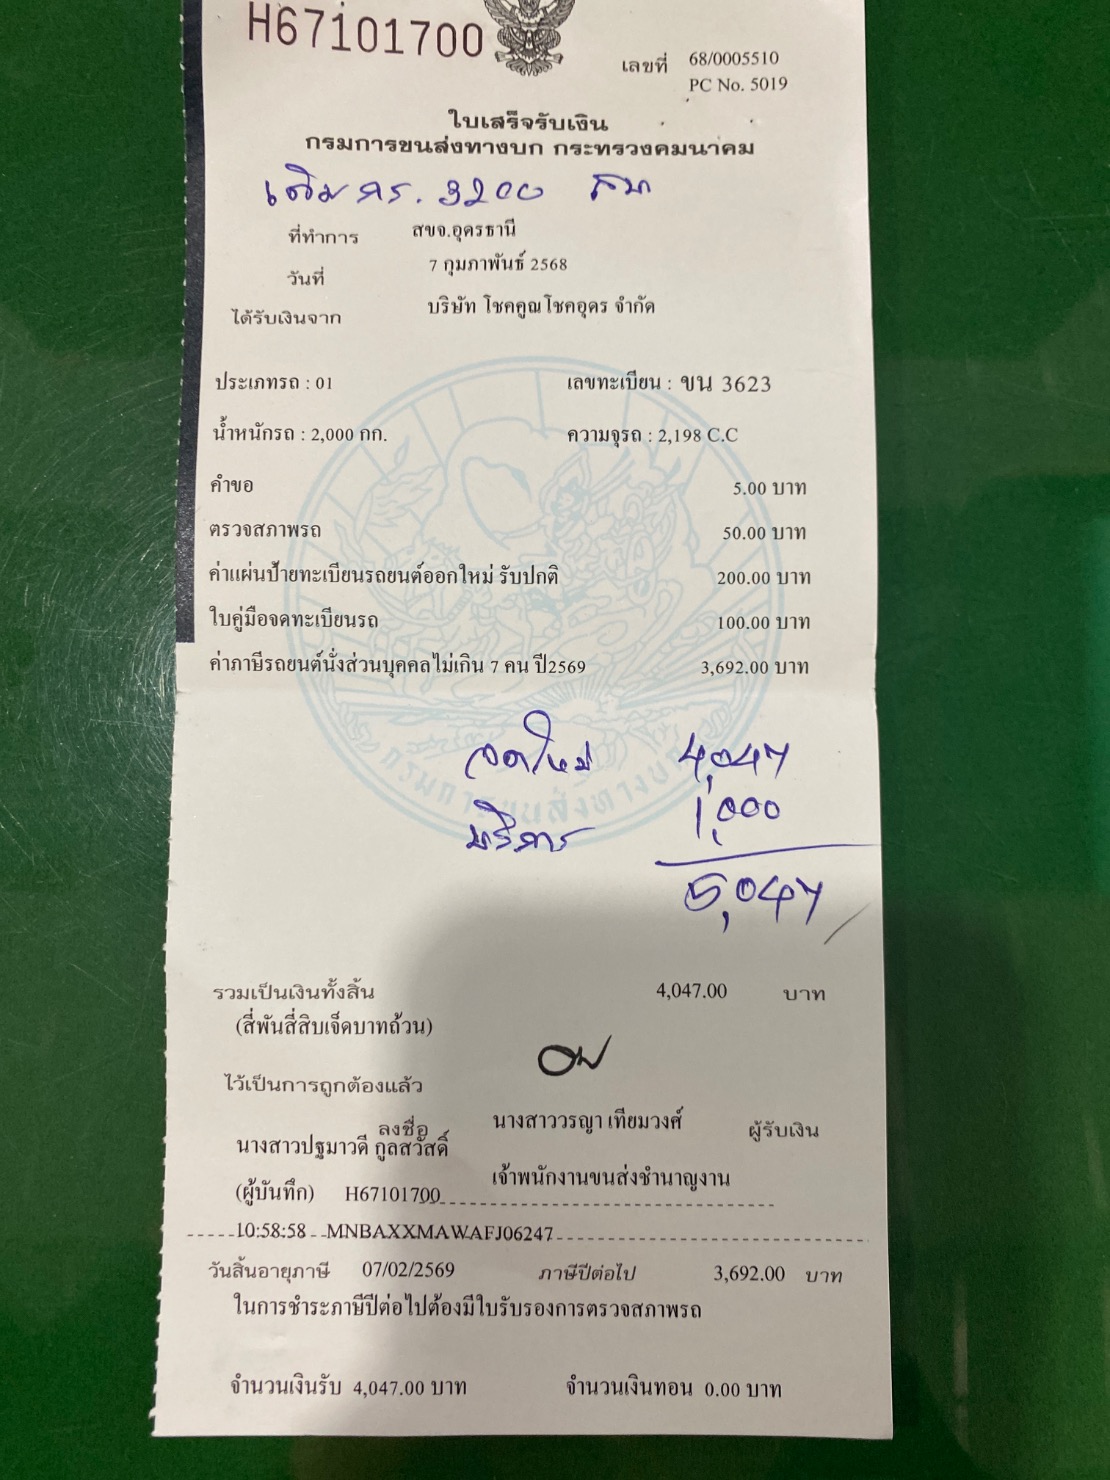 H67101700
เลขที่ 68/0005510
PC No. 5019
ใบเสร็จรับเงิน
กรมการขนส่งทางบก กระทรวงคมนาคม
เดิม กร. 3200
ที่ทำการ สขจ.อุดรธานี
วันที่ 7 กุมภาพันธ์ 2568
ได้รับเงินจาก บริษัท โชคคูณโชคอุดร จำกัด
ประเภทรถ : 01 เลขทะเบียน : ขน 3623
น้ำหนักรถ : 2,000 กก. ความจุรถ : 2,198 C.C
คำขอ 5.00 บาท
ตรวจสภาพรถ 50.00 บาท
ค่าแผ่นป้ายทะเบียนรถยนต์ออกใหม่ รับปกติ 200.00 บาท
ใบคู่มือจดทะเบียนรถ 100.00 บาท
ค่าภาษีรถยนต์นั่งส่วนบุคคลไม่เกิน 7 คน ปี2569 3,692.00 บาท
จดใหม่ 4,047
บริการ 1,000
5,047
กรมการขนส่งทางบก
รวมเป็นเงินทั้งสิ้น 4,047.00 บาท
(สี่พันสี่สิบเจ็ดบาทถ้วน)
ไว้เป็นการถูกต้องแล้ว
ลงชื่อ นางสาววรญา เทียมวงศ์ ผู้รับเงิน
นางสาวปฐมาวดี กูลสวัสดิ์
เจ้าพนักงานขนส่งชำนาญงาน
(ผู้บันทึก) H67101700
10:58:58 MNBAXXMAWAFJ06247
วันสิ้นอายุภาษี 07/02/2569 ภาษีปีต่อไป 3,692.00 บาท
ในการชำระภาษีปีต่อไปต้องมีใบรับรองการตรวจสภาพรถ
จำนวนเงินรับ 4,047.00 บาท จำนวนเงินทอน 0.00 บาท